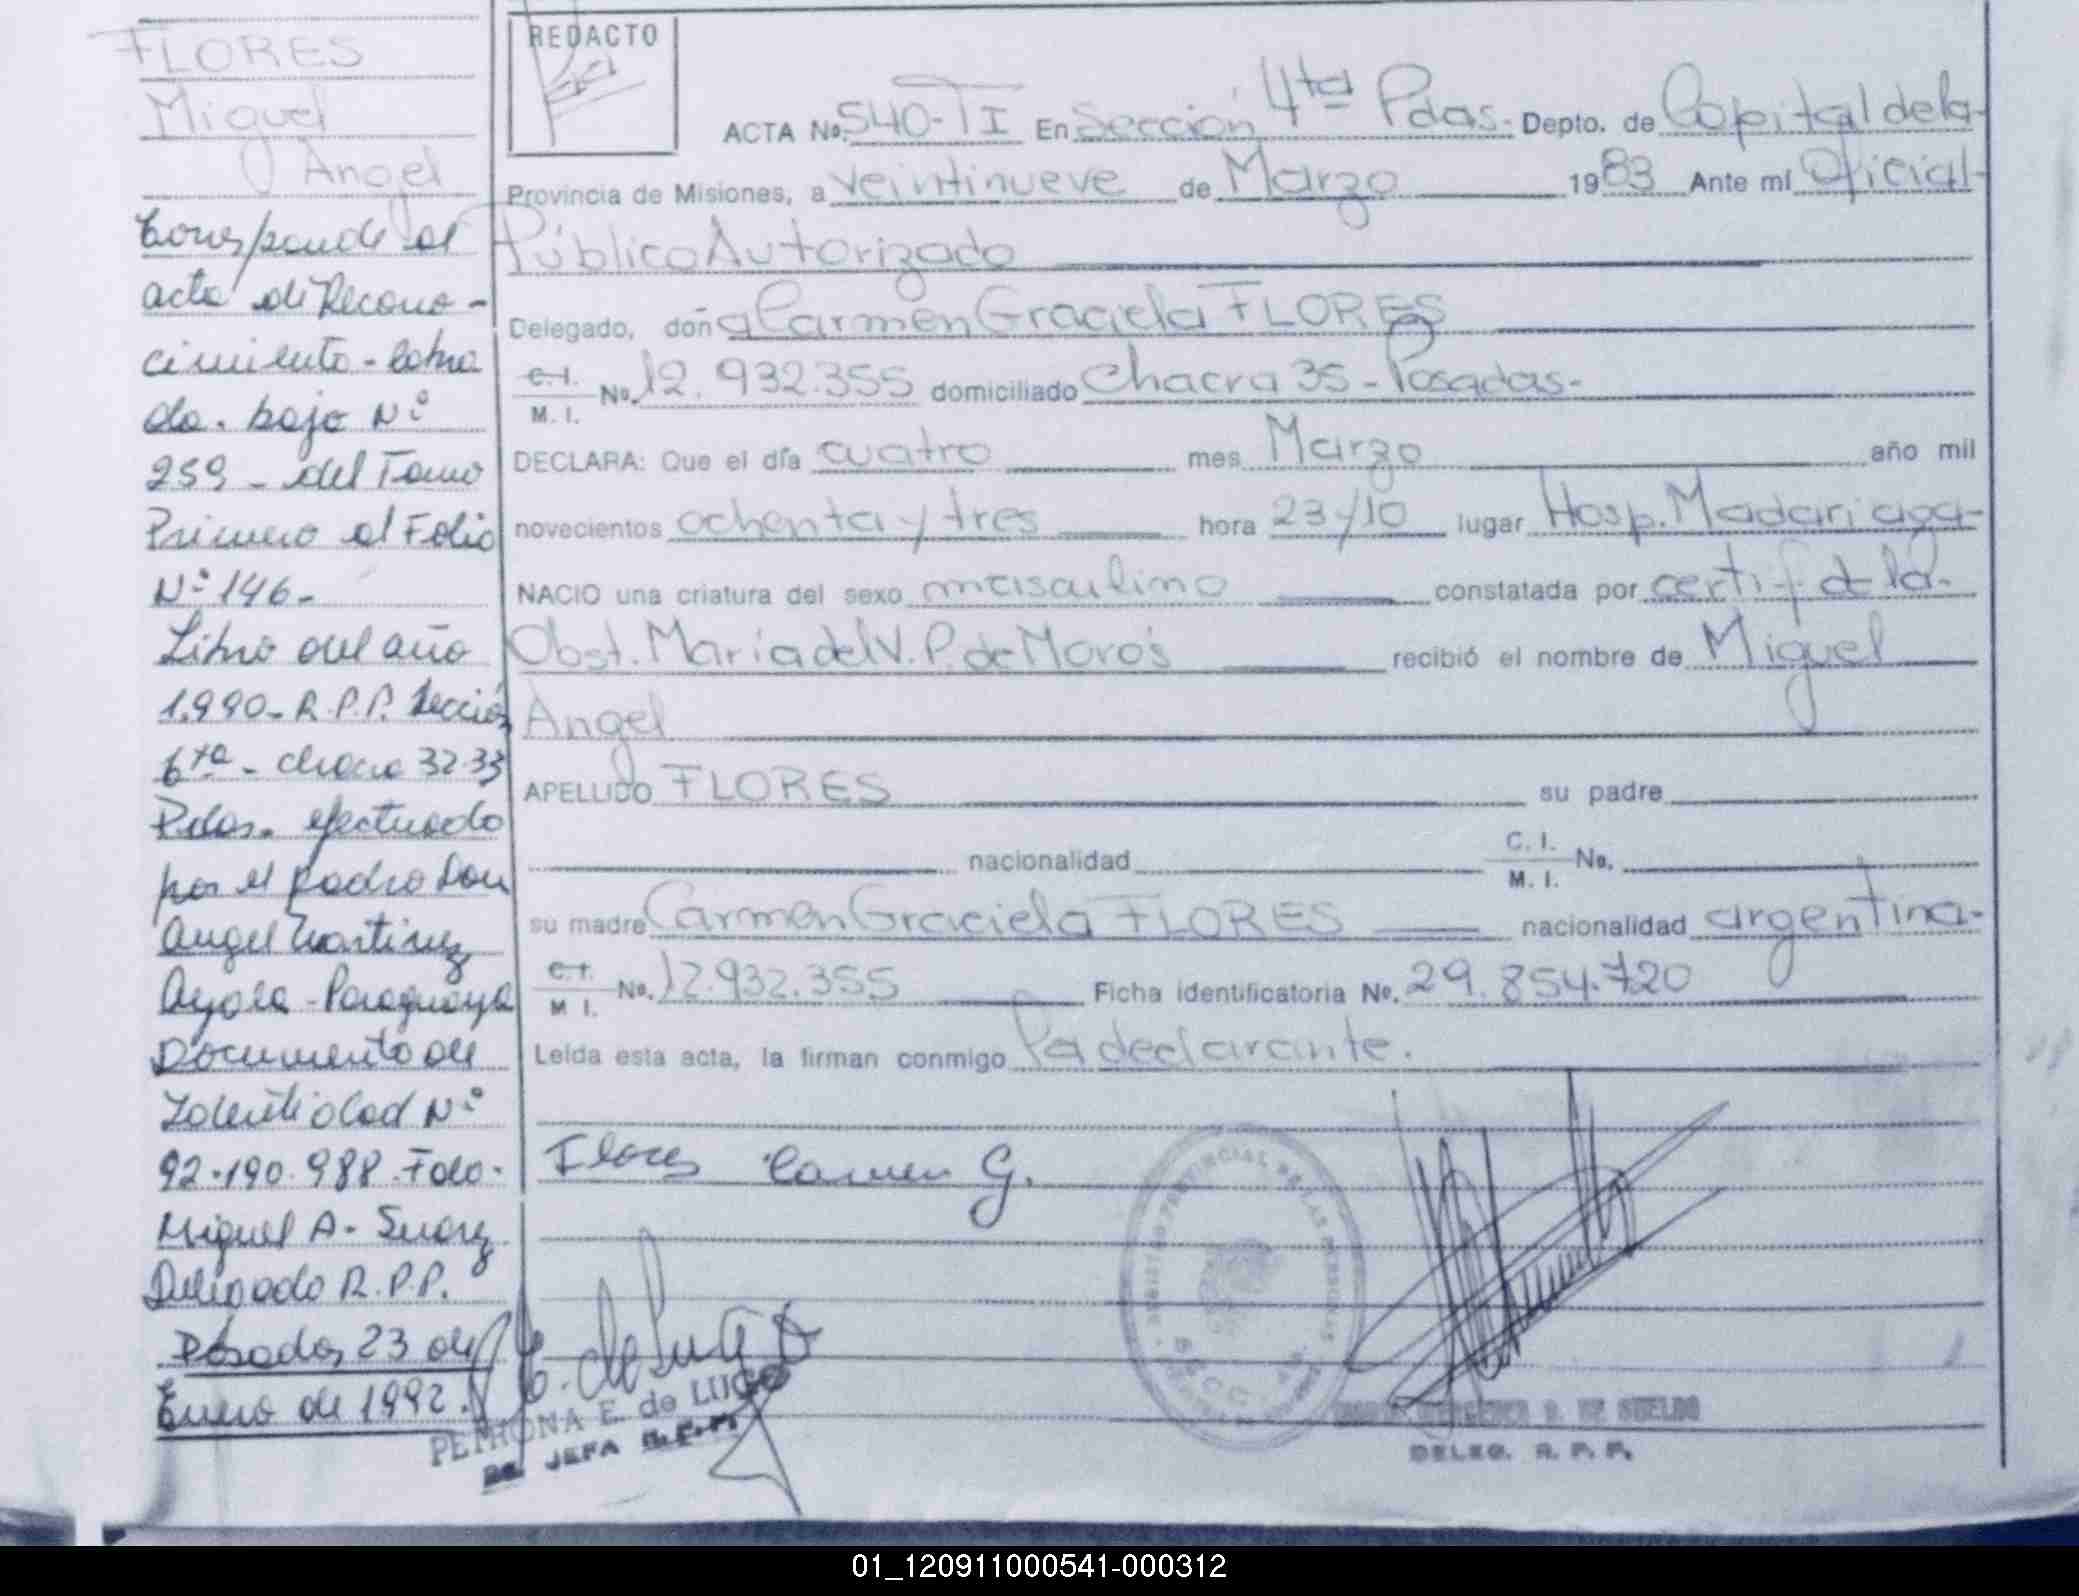 FLORES
Miguel
Angel
Corresponde al
acta de Recono-
cimiento - labra
da. bajo N°
259 - del Tomo
Primero al Folio
N° 146-
Libro del año
1.990- R.P.P. Sección
6ta - chacra 32-33
Pdas. efectuado
por el padre Don
Angel Martinez
Ayala - Paraguaya
Documento de
Identidad N°
92.190.988. Fdo:
Miguel A. Suarez
Delegado R.P.P.
Posadas, 23 de
Enero de 1992.
REDACTO
ACTA No. 540-TI En Sección 4ta Pdas. Depto. de Capital de la
Provincia de Misiones, a veintinueve de Marzo 1983 Ante mí Oficial
Público Autorizado
Delegado, doña Carmen Graciela FLORES
C.I.
M. I. No. 12.932.355 domiciliado Chacra 35 - Posadas-
DECLARA: Que el día cuatro mes Marzo año mil
novecientos ochenta y tres hora 23y10 lugar Hosp. Madariaga
NACIO una criatura del sexo masculino constatada por certif. de la
Obst. María del V. P. de Moro's recibió el nombre de Miguel
Angel
APELLIDO FLORES su padre
nacionalidad C. I.
M. I. No.
su madre Carmen Graciela FLORES nacionalidad argentina-
C.I.
M I. No. 12.932.355 Ficha identificatoria No. 29.854.720
Leída esta acta, la firman conmigo la declarante.
Flores Carmen G.
REGISTRO PROVINCIAL DE LAS PERSONAS
de Lugo
PETRONA E. de LUGO
JEFA
DE SUELDO
DELEG. R. P. P.
01_120911000541-000312